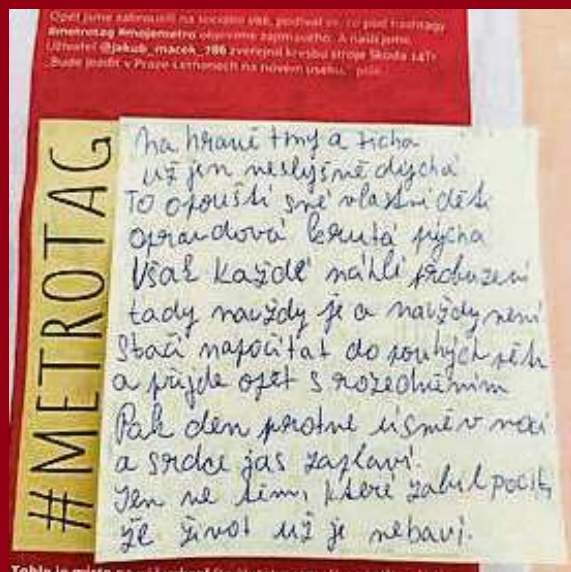 Opět jsme zabrousili na sociální sítě, podívat se, co pod hashtagy
#metrotag #mojemetro objevíme zajímavého. A našli jsme.
Uživatel @jakub_macek_786 zveřejnil kresbu stroje Škoda 14Tr
„Bude jezdit v Praze-Letňanech na novém úseku,“ píše
#METROTAG
Na hraně tmy a ticha
už jen neslyšně dýchá
To opouští své vlastní děti
opravdová krutá pýcha
Však každé náhlí probuzení
tady navždy je a navždy není
Stačí napočítat do pouhých pěti
a přijde opět s rozedněním
Pak den protne úsměv noci
a srdce jas zaplaví.
Jen ne těm, které zabil pocit,
že život už je nebaví.